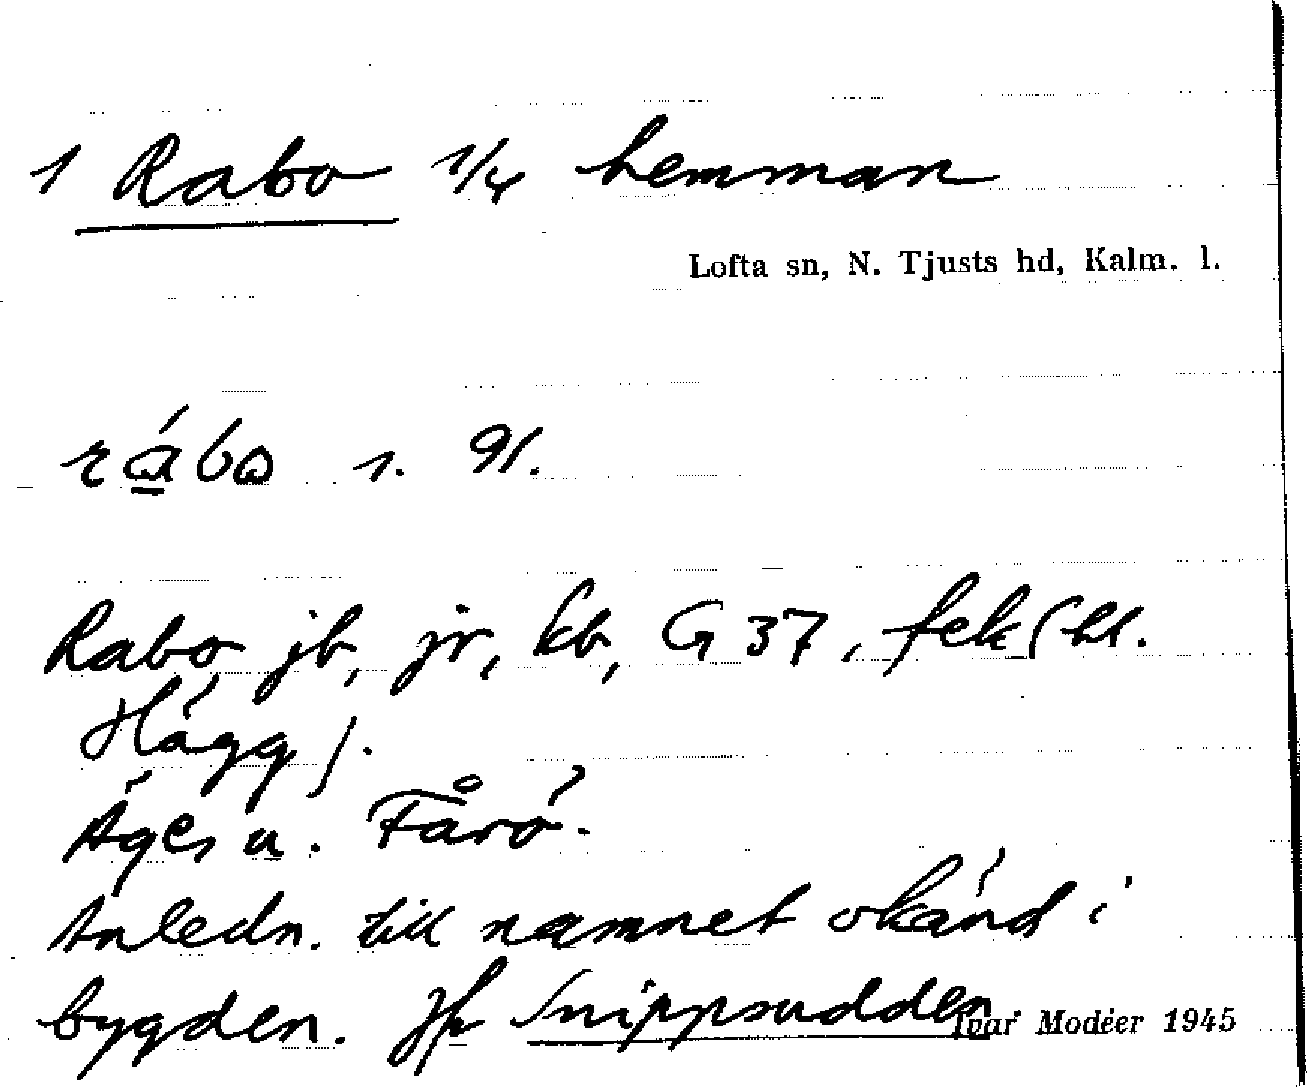 1 Rabo 1/4 hemman
Lofta sn, N. Tjusts hd, Kalm. l.
rábo 1. 91.
Rabo jb, jr, kb, G 37, fek (bl.
Hägg).
Äges u. Fårö.
Anledn. till namnet okänd i
bygden. Jfr Snippsudden
Ivar Modéer 1945